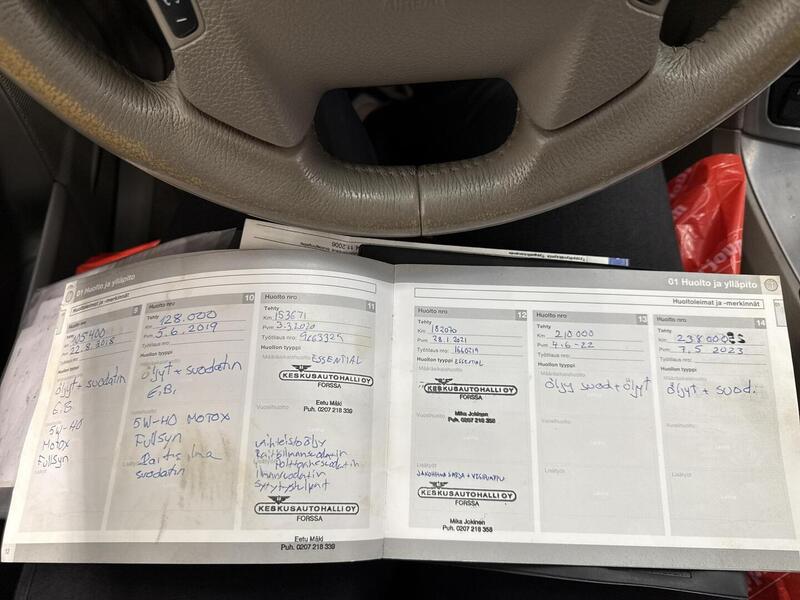 AIRBAG
01 Huolto ja ylläpito
Huoltoleimat ja -merkinnät
9
Km 105400
Pvm 22.8.2018
öljyt + suodatin
E.B.
5W-40
MOTOX
Fullsyn
12
Huolto nro 10
Tehty
Km 128.000
Pvm 5.6.2019
Työtilaus nro
Huollon tyyppi
öljyt + suodatin
E.B.
5W-40 MOTOX
Fullsyn
Raitis ilma
suodatin
Huolto nro 11
Tehty
Km 153671
Pvm 3.3.2020
Työtilaus nro
Huollon tyyppi
ESSENTIAL
KESKUSAUTOHALLI OY
FORSSA
Eetu Mäki
Puh. 0207 218 339
Vaihteistoöljy
Raitisilmansuodatin
Polttoainesuodatin
ilmansuodatin
Sytytystulpat
KESKUSAUTOHALLI OY
FORSSA
Eetu Mäki
Puh. 0207 218 339
01 Huolto ja ylläpito
Huoltoleimat ja -merkinnät
Huolto nro 12
Tehty
Km 182070
Pvm 28.1.2021
Työtilaus nro
Huollon tyyppi ESSENTIAL
Määräaikaishuolto
KESKUSAUTOHALLI OY
FORSSA
Vuosihuolto
Mika Jokinen
Puh. 0207 218 358
Lisätyöt
JAKOHIHNA SARJA + VESIPUMPPU
KESKUSAUTOHALLI OY
FORSSA
Mika Jokinen
Puh. 0207 218 358
Huolto nro 13
Tehty
Km 210000
Pvm 4.6-22
Työtilaus nro
Huollon tyyppi
Määräaikaishuolto
öljy suod+öljyt
Vuosihuolto
Lisätyöt
Huolto nro 14
Tehty
Km
Pvm 7.5 2023
Työtilaus nro
Huollon tyyppi
Määräaikaishuolto
öljyt + suod.
Vuosihuolto
Lisätyöt